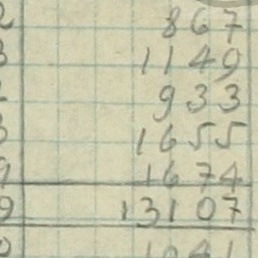 2 867
3 1149
2 933
3 1655
9 1674
9 13107
1041